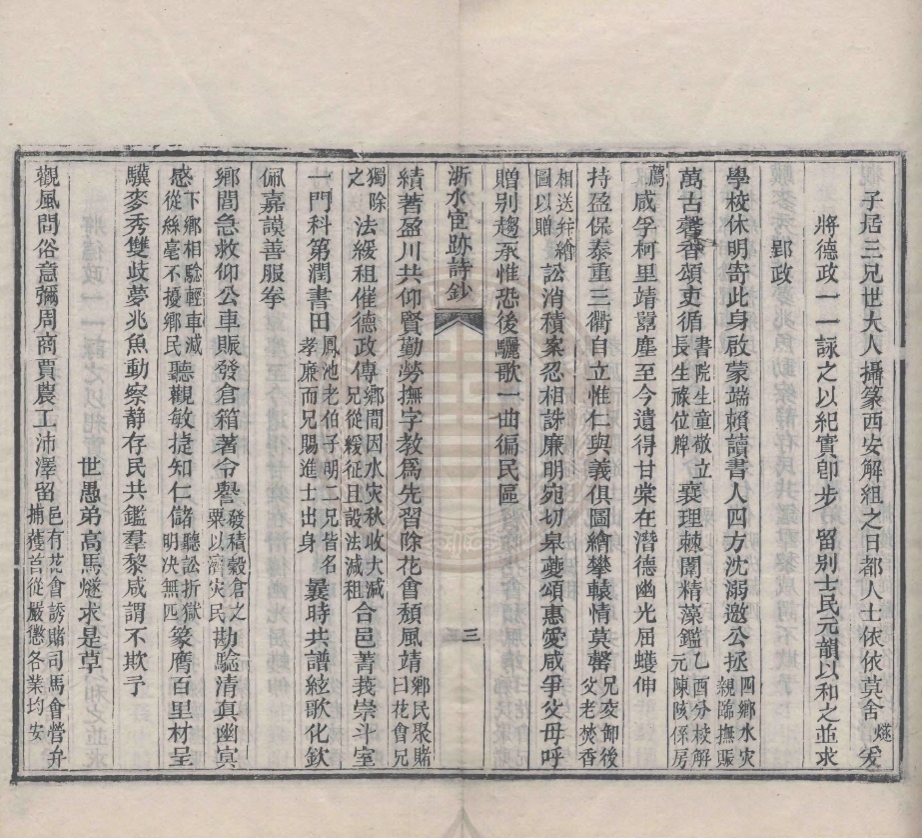 子居三兄世大人攝篆西安解組之日都人士依依莫舍燧爰
將德政一一詠之以紀實卽步 留別士民元韻以和之並求
郢政
學校休明寄此身啟蒙端賴讀書人四方沈溺邀公拯四鄉水灾親臨撫賑
萬古馨香頌吏循書院生童敬立長生祿位牌襄理棘闈精藻鑑乙酉分校解元陳陔係房
薦咸孚柯里靖囂塵至今遺得甘棠在潛德幽光屈蠖伸
持盈保泰重三衢自立惟仁與義俱圖繪攀轅情莫罄兄交卸後父老焚香
相送并繪圖以贈訟消積案忍相誅廉明宛切皋夔頌惠愛咸爭父母呼
贈別趨承惟恐後驪歌一曲徧民區
浙水宦跡詩鈔 三
績著盈川共仰賢勤勞撫字教爲先習除花會頹風靖鄉民聚賭曰花會兄
獨除之法緩租催德政傳鄉間因水灾秋收大減兄從緩征且設法減租合邑菁莪崇斗室
一門科第潤書田鳳池老伯子胡二兄皆名孝廉而兄賜進士出身曩時共譜絃歌化欽
佩嘉謨善服拳
鄉閭急救仰公車賑發倉箱著令譽發積穀倉之粟以濟灾民勘驗清真幽寃
感下鄉相驗輕車減從絲毫不擾鄉民聽觀敏捷知仁儲聽訟折獄明决無匹篆膺百里材呈
驥麥秀雙歧夢兆魚動察靜存民共鑑羣黎咸謂不欺予
世愚弟高馬燧求是草
觀風問俗意彌周商賈農工沛澤留邑有花會誘賭司馬會營弁捕獲首從嚴懲各業均安